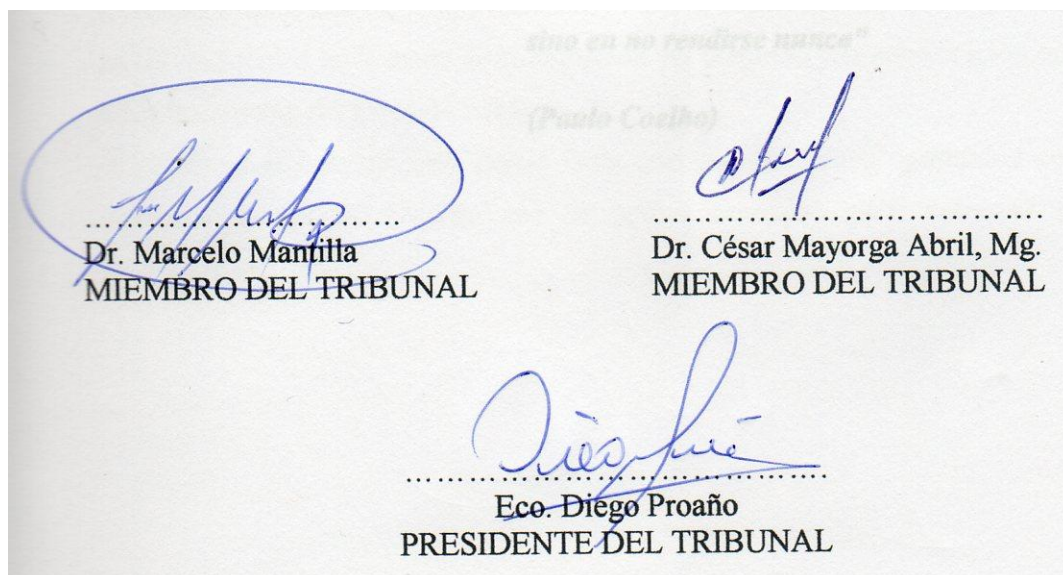 sino en no rendirse nunca"
(Paulo Coelho)
Dr. Marcelo Mantilla
MIEMBRO DEL TRIBUNAL
Dr. César Mayorga Abril, Mg.
MIEMBRO DEL TRIBUNAL
Eco. Diego Proaño
PRESIDENTE DEL TRIBUNAL